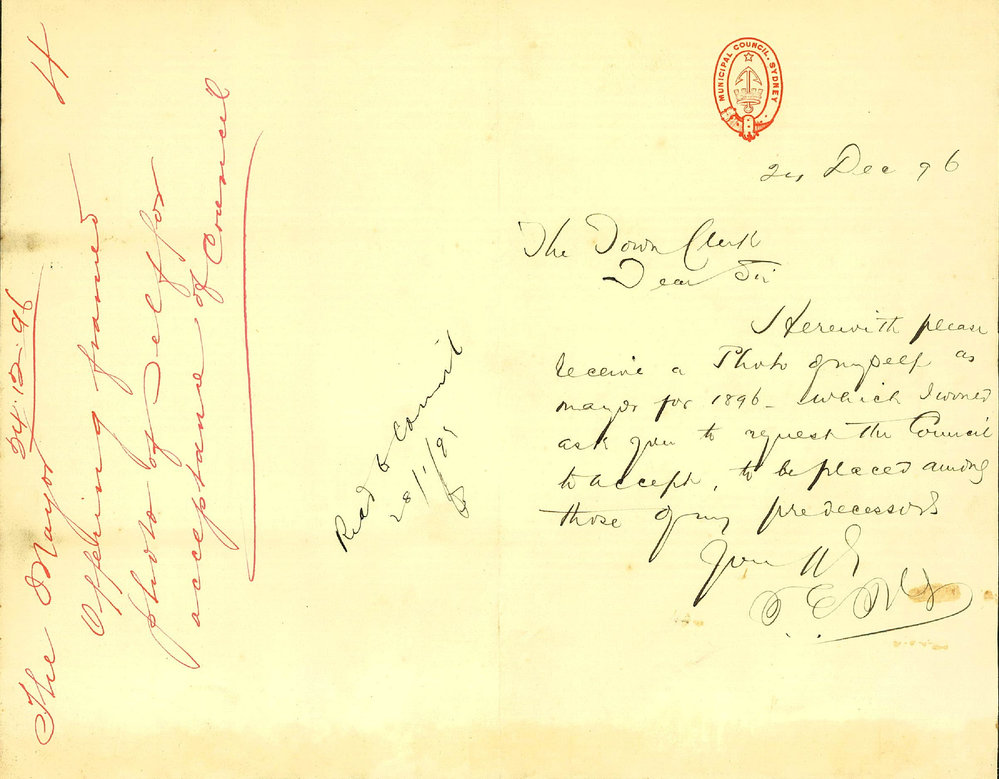 MUNICIPAL COUNCIL. SYDNEY
24 Dec 96
The Town Clerk
Dear Sir
Herewith please
receive a Photo of myself as
mayor for 1896 - which I would
ask you to request the Council
to accept, to be placed among
those of my predecessors
Read to Council
28/1/
4
The Mayor
24.12.96
Offering framed
photo of self for
acceptance of Council